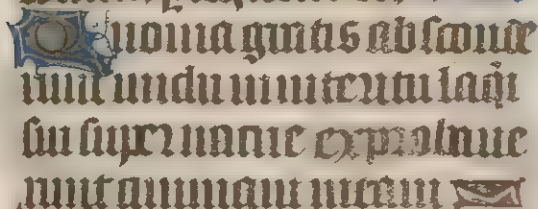 Quonia gratis absconde
runt michi interitu laqi
sui superuacue exprobraue
runt animam meam